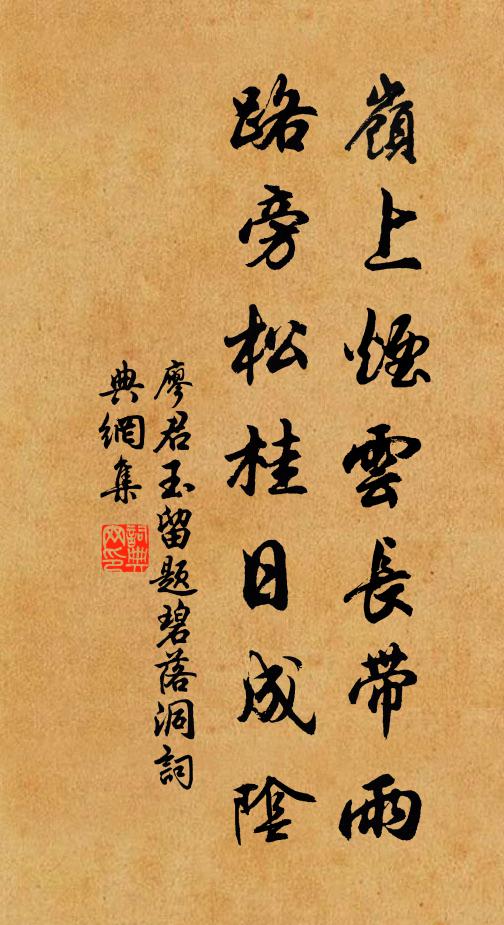 嶺上煙雲長帶雨
路旁松桂日成陰
廖君玉留題碧落洞詞
典網集
詞典網印